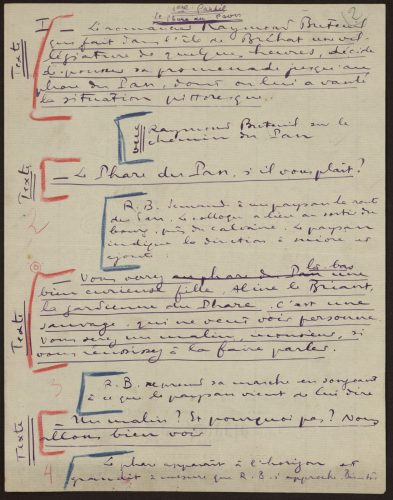 1ère Partie
Le Phare du Paon
2
Texte
I — Le romancier Raymond Breteuil
qui fait dans l'île de Bréhat une vil-
légiature de quelques heures, décide
de pousser sa promenade jusqu'au
phare du Paon, dont on lui a vanté
la situation pittoresque
vue
Raymond Breteuil sur le
chemin du Paon
Texte
— Le Phare du Paon, s'il vous plaît?
2
R. B. demande à un paysan la route
du Paon. Le colloque a lieu au sortir du
bourg, près du calvaire. Le paysan
indique la direction à suivre et
ajoute
Texte
— Vous verrez au phare du Paon là-bas une
bien curieuse fille, Aline le Briant,
la gardienne du Phare. C'est une
sauvage, qui ne veut voir personne
Vous serez un malin, monsieur, si
vous réussissez à la faire parler.
3
R. B. reprend sa marche en songeant
à ce que le paysan vient de lui dire
Texte
— Un malin? Et pourquoi pas? Nous
allons bien voir
4
Le phare apparaît à l'horizon et
grandit à mesure que R. B. s'approche